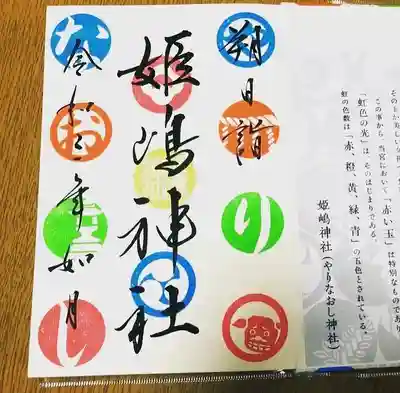 この事から、当宮において「赤い玉」は特別なものであり
「虹色の光」は、そのはじまりである。
虹の色数は「赤、橙、黄、緑、青」の五色とされている。
姫嶋神社(やりなおし神社)
朔日詣
り
姫嶋神社
令和二年如月
な
お
し